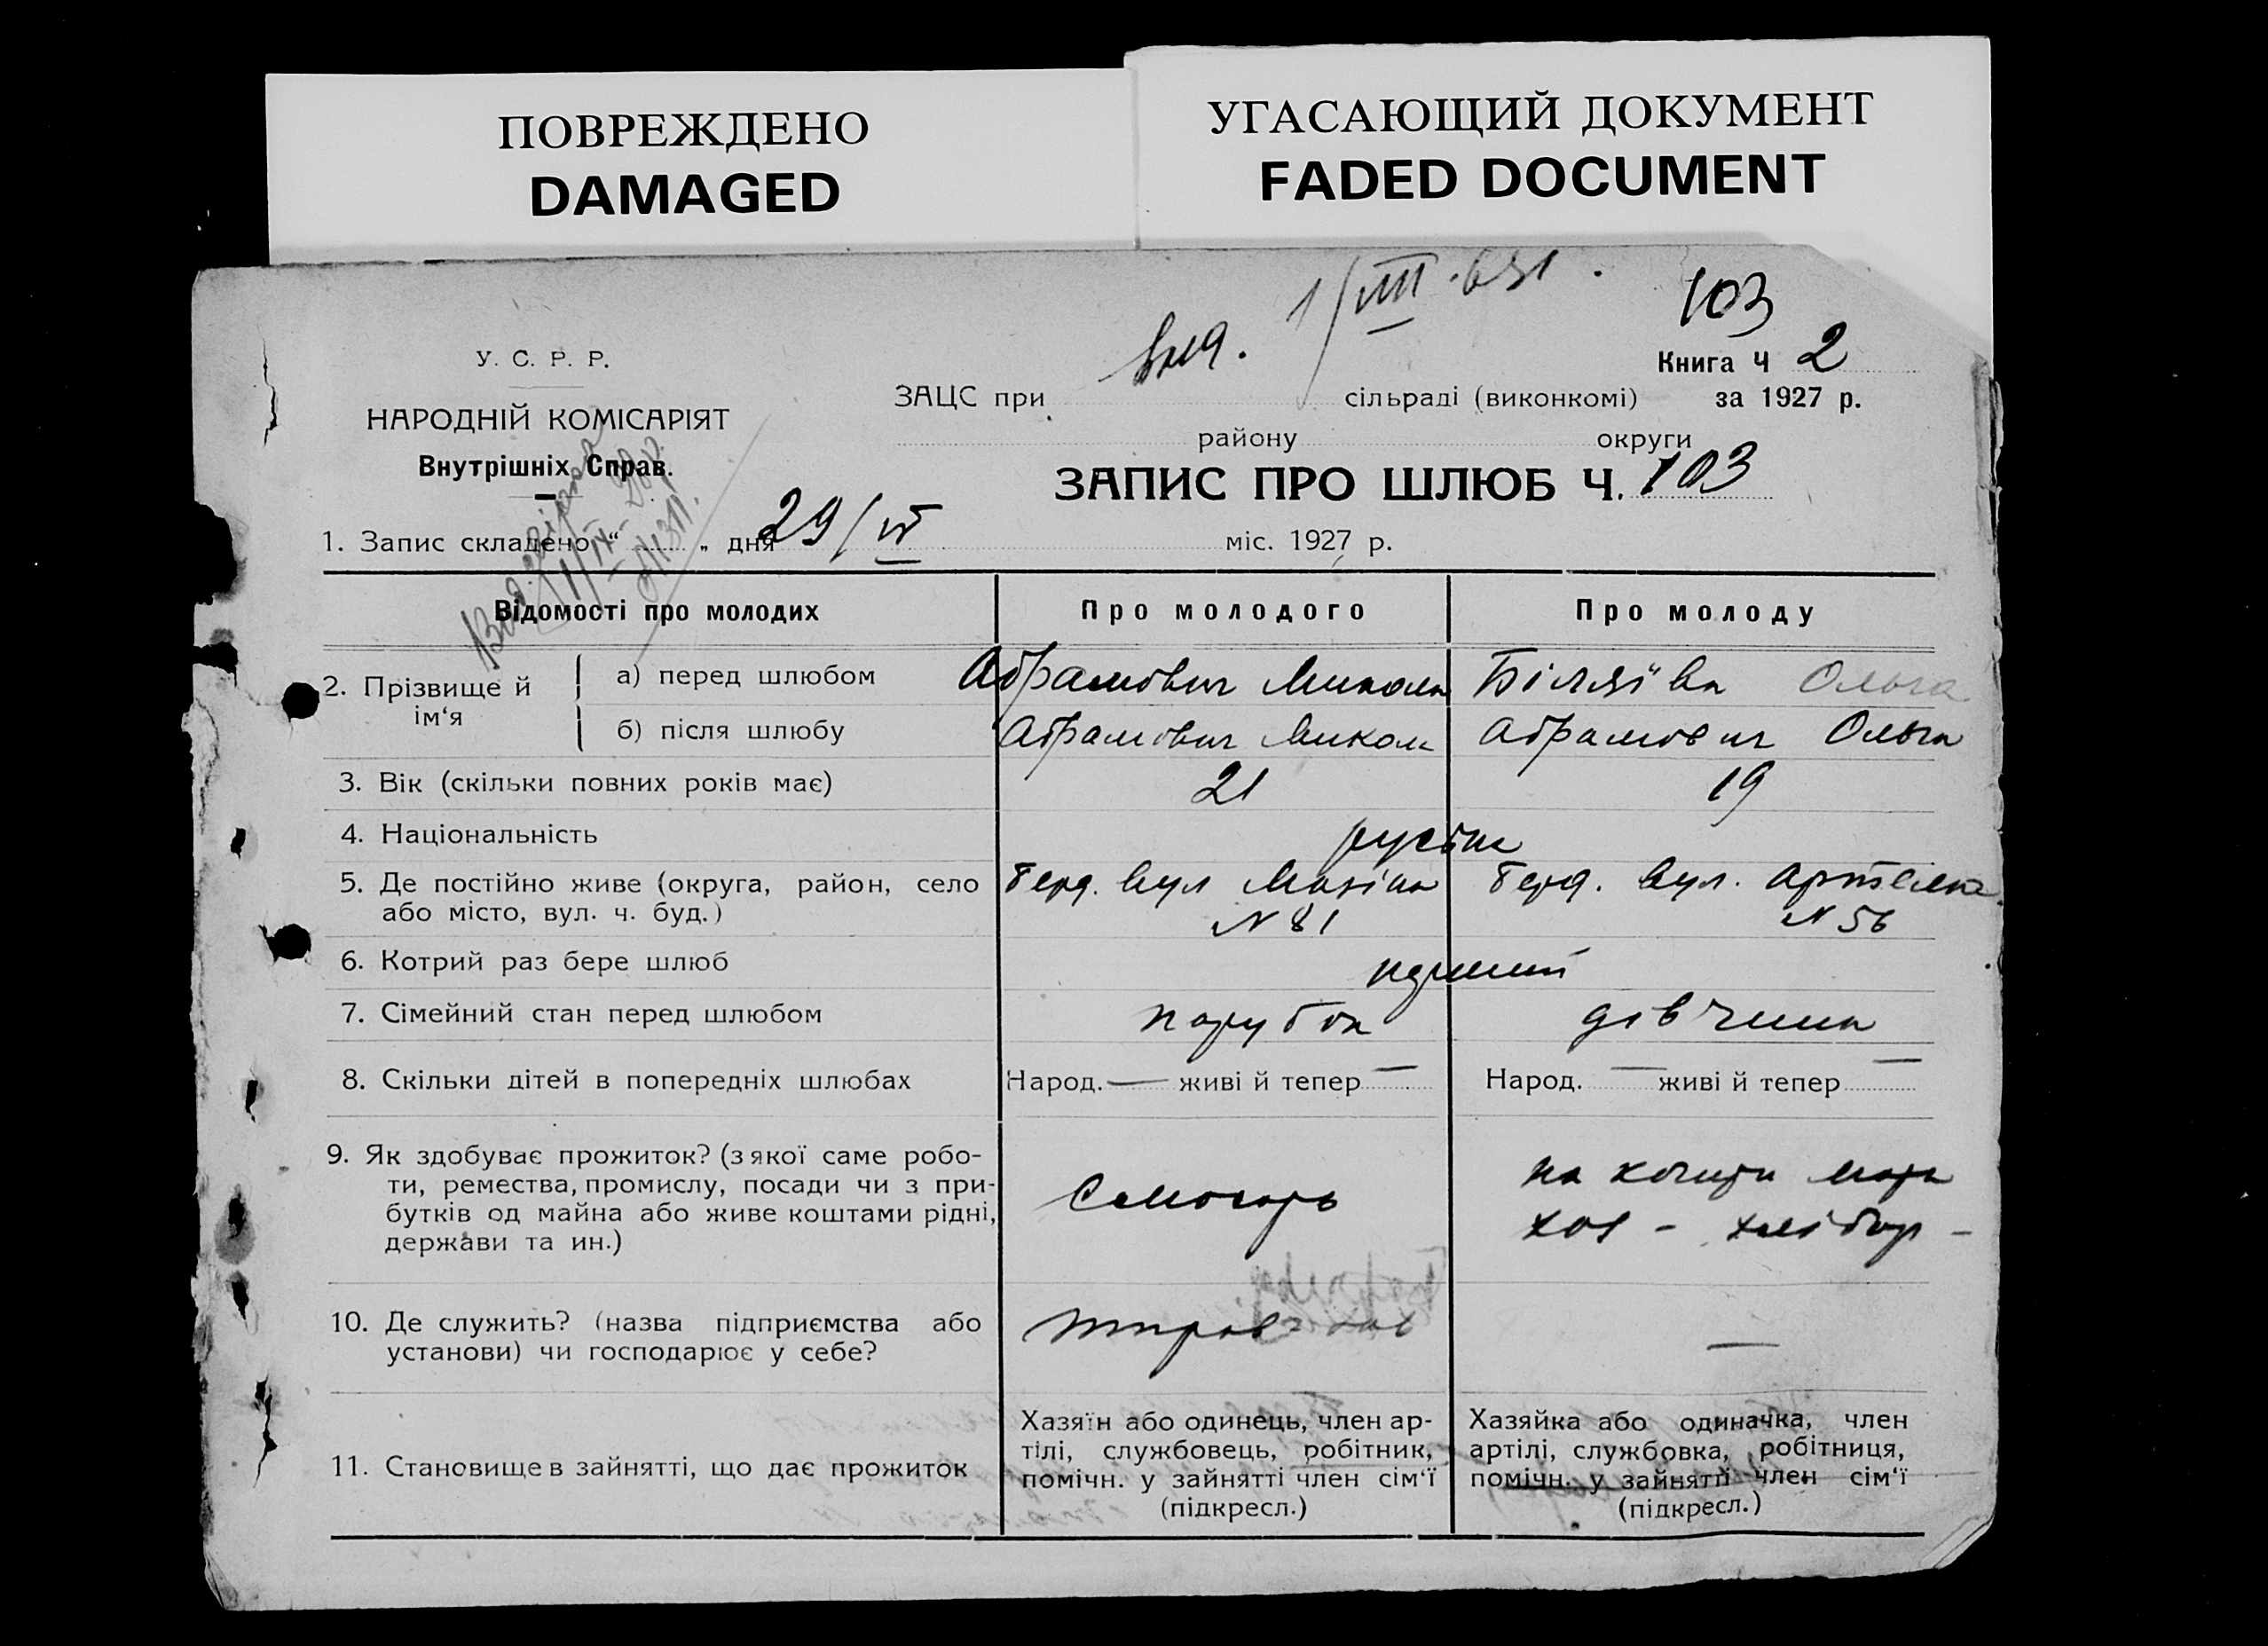 ПОВРЕЖДЕНО
DAMAGED
УГАСАЮЩИЙ ДОКУМЕНТ
FADED DOCUMENT
103
У. С. Р. Р.
НАРОДНІЙ КОМІСАРІЯТ
Внутрішніх Справ.
Книга Ч 2
ЗАЦС при сільраді (виконкомі) за 1927 р.
району округи
ЗАПИС ПРО ШЛЮБ Ч. 103
1. Запис складено „ “ дня 29/VI міс. 1927 р.
Відомості про молодих Про молодого Про молоду
2. Прізвище й ім‘я
а) перед шлюбом Абрамович Микола Біляїва Ольга
б) після шлюбу Абрамович Микола Абрамович Ольга
3. Вік (скільки повних років має) 21 19
4. Національність руські
5. Де постійно живе (округа, район, село Берд. вул Берд. вул.
або місто, вул. ч. буд.) N 81 N 56
6. Котрий раз бере шлюб перший
7. Сімейний стан перед шлюбом парубок дівчина
8. Скільки дітей в попередніх шлюбах Народ. — живі й тепер — Народ. — живі й тепер —
9. Як здобуває прожиток? (з якої саме робо-
ти, ремества, промислу, посади чи з при-
бутків од майна або живе коштами рідні,
держави та ин.)
Слюсарь
на кошти
10. Де служить? (назва підприємства або
установи) чи господарює у себе?
—
11. Становище в зайнятті, що дає прожиток
Хазяїн або одинець, член ар-
тілі, службовець, робітник,
помічн. у зайнятті член сім‘ї
(підкресл.)
Хазяйка або одиначка, член
артілі, службовка, робітниця,
помічн. у зайнятті член сім‘ї
(підкресл.)